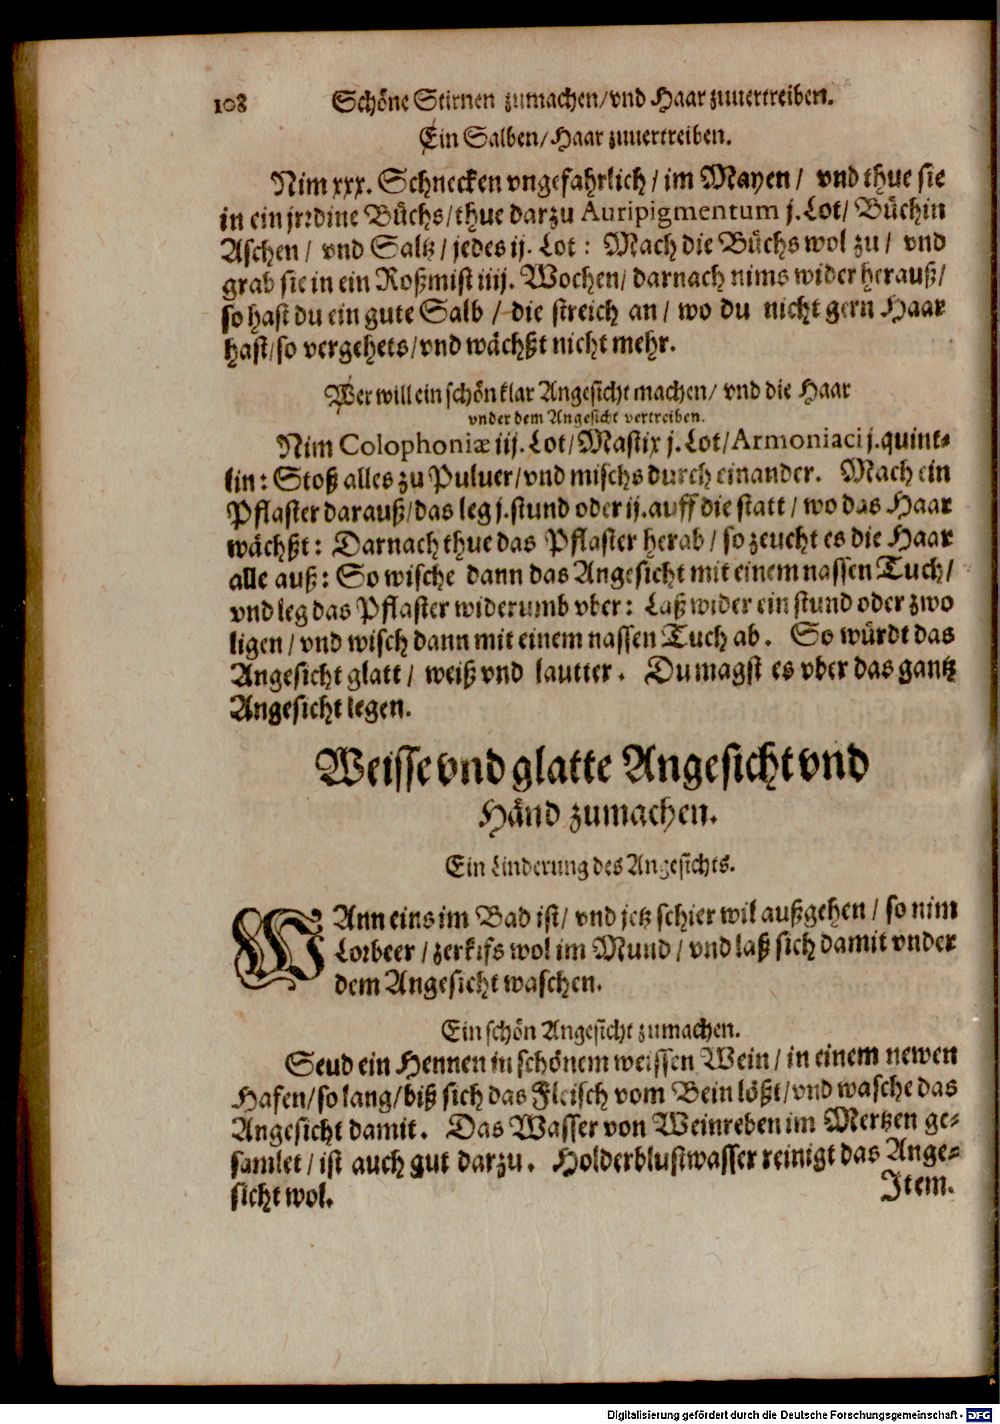 108 Schöne Stirnen zumachen/vnd Haar zuuertreiben.
Ein Salben/Haar zuuertreiben.
Nim xxx. Schnecken vngefahrlich/im Mayen/ vnd thue sie
in ein jrrdine Büchs/thue darzu Auripigmentum j.Lot/Büchin
Aschen/ vnd Saltz/jedes ij. Lot: Mach die Büchs wol zu/ vnd
grab sie in ein Roßmist iiij. Wochen/darnach nims wider herauß/
so hast du ein gute Salb/die streich an/ wo du nicht gern Haar
hast/so vergehets/vnd wächßt nicht mehr.
Wer will ein schön klar Angesicht machen/ vnd die Haar
vnder dem Angesicht vertreiben.
Nim Colophoniæ iij.Lot/Mastix j.Lot/Armoniaci j.quint-
lin: Stoß alles zu Puluer/vnd mischs durch einander. Mach ein
Pflaster darauß/das leg j.stund oder ij.auff die statt/wo das Haar
wächßt: Darnach thue das Pflaster herab/so zeucht es die Haar
alle auß: So wische dann das Angesicht mit einem nassen Tuch/
vnd leg das Pflaster widerumb vber: Laß wider ein stund oder zwo
ligen/vnd wisch dann mit einem nassen Tuch ab. So würdt das
Angesicht glatt/ weiß vnd lautter. Du magst es vber das gantz
Angesicht legen.
Weisse vnd glatte Angesicht vnd
Händ zumachen.
Ein Linderung des Angesichts.
WAnn eins im Bad ist/ vnd jetz schier wil außgehen/so nim
Lorbeer/zerkifs wol im Mund/vnd laß sich damit vnder
dem Angesicht waschen.
Ein schön Angesicht zumachen.
Seud ein Hennen in schönem weissen Wein/in einem newen
Hafen/so lang/biß sich das Fleisch vom Bein lößt/vnd wasche das
Angesicht damit. Das Wasser von Weinreben im Mertzen ge-
samlet/ist auch gut darzu. Holderblustwasser reinigt das Ange-
sicht wol.
Item.
Digitalisierung gefördert durch die Deutsche Forschungsgemeinschaft - DFG